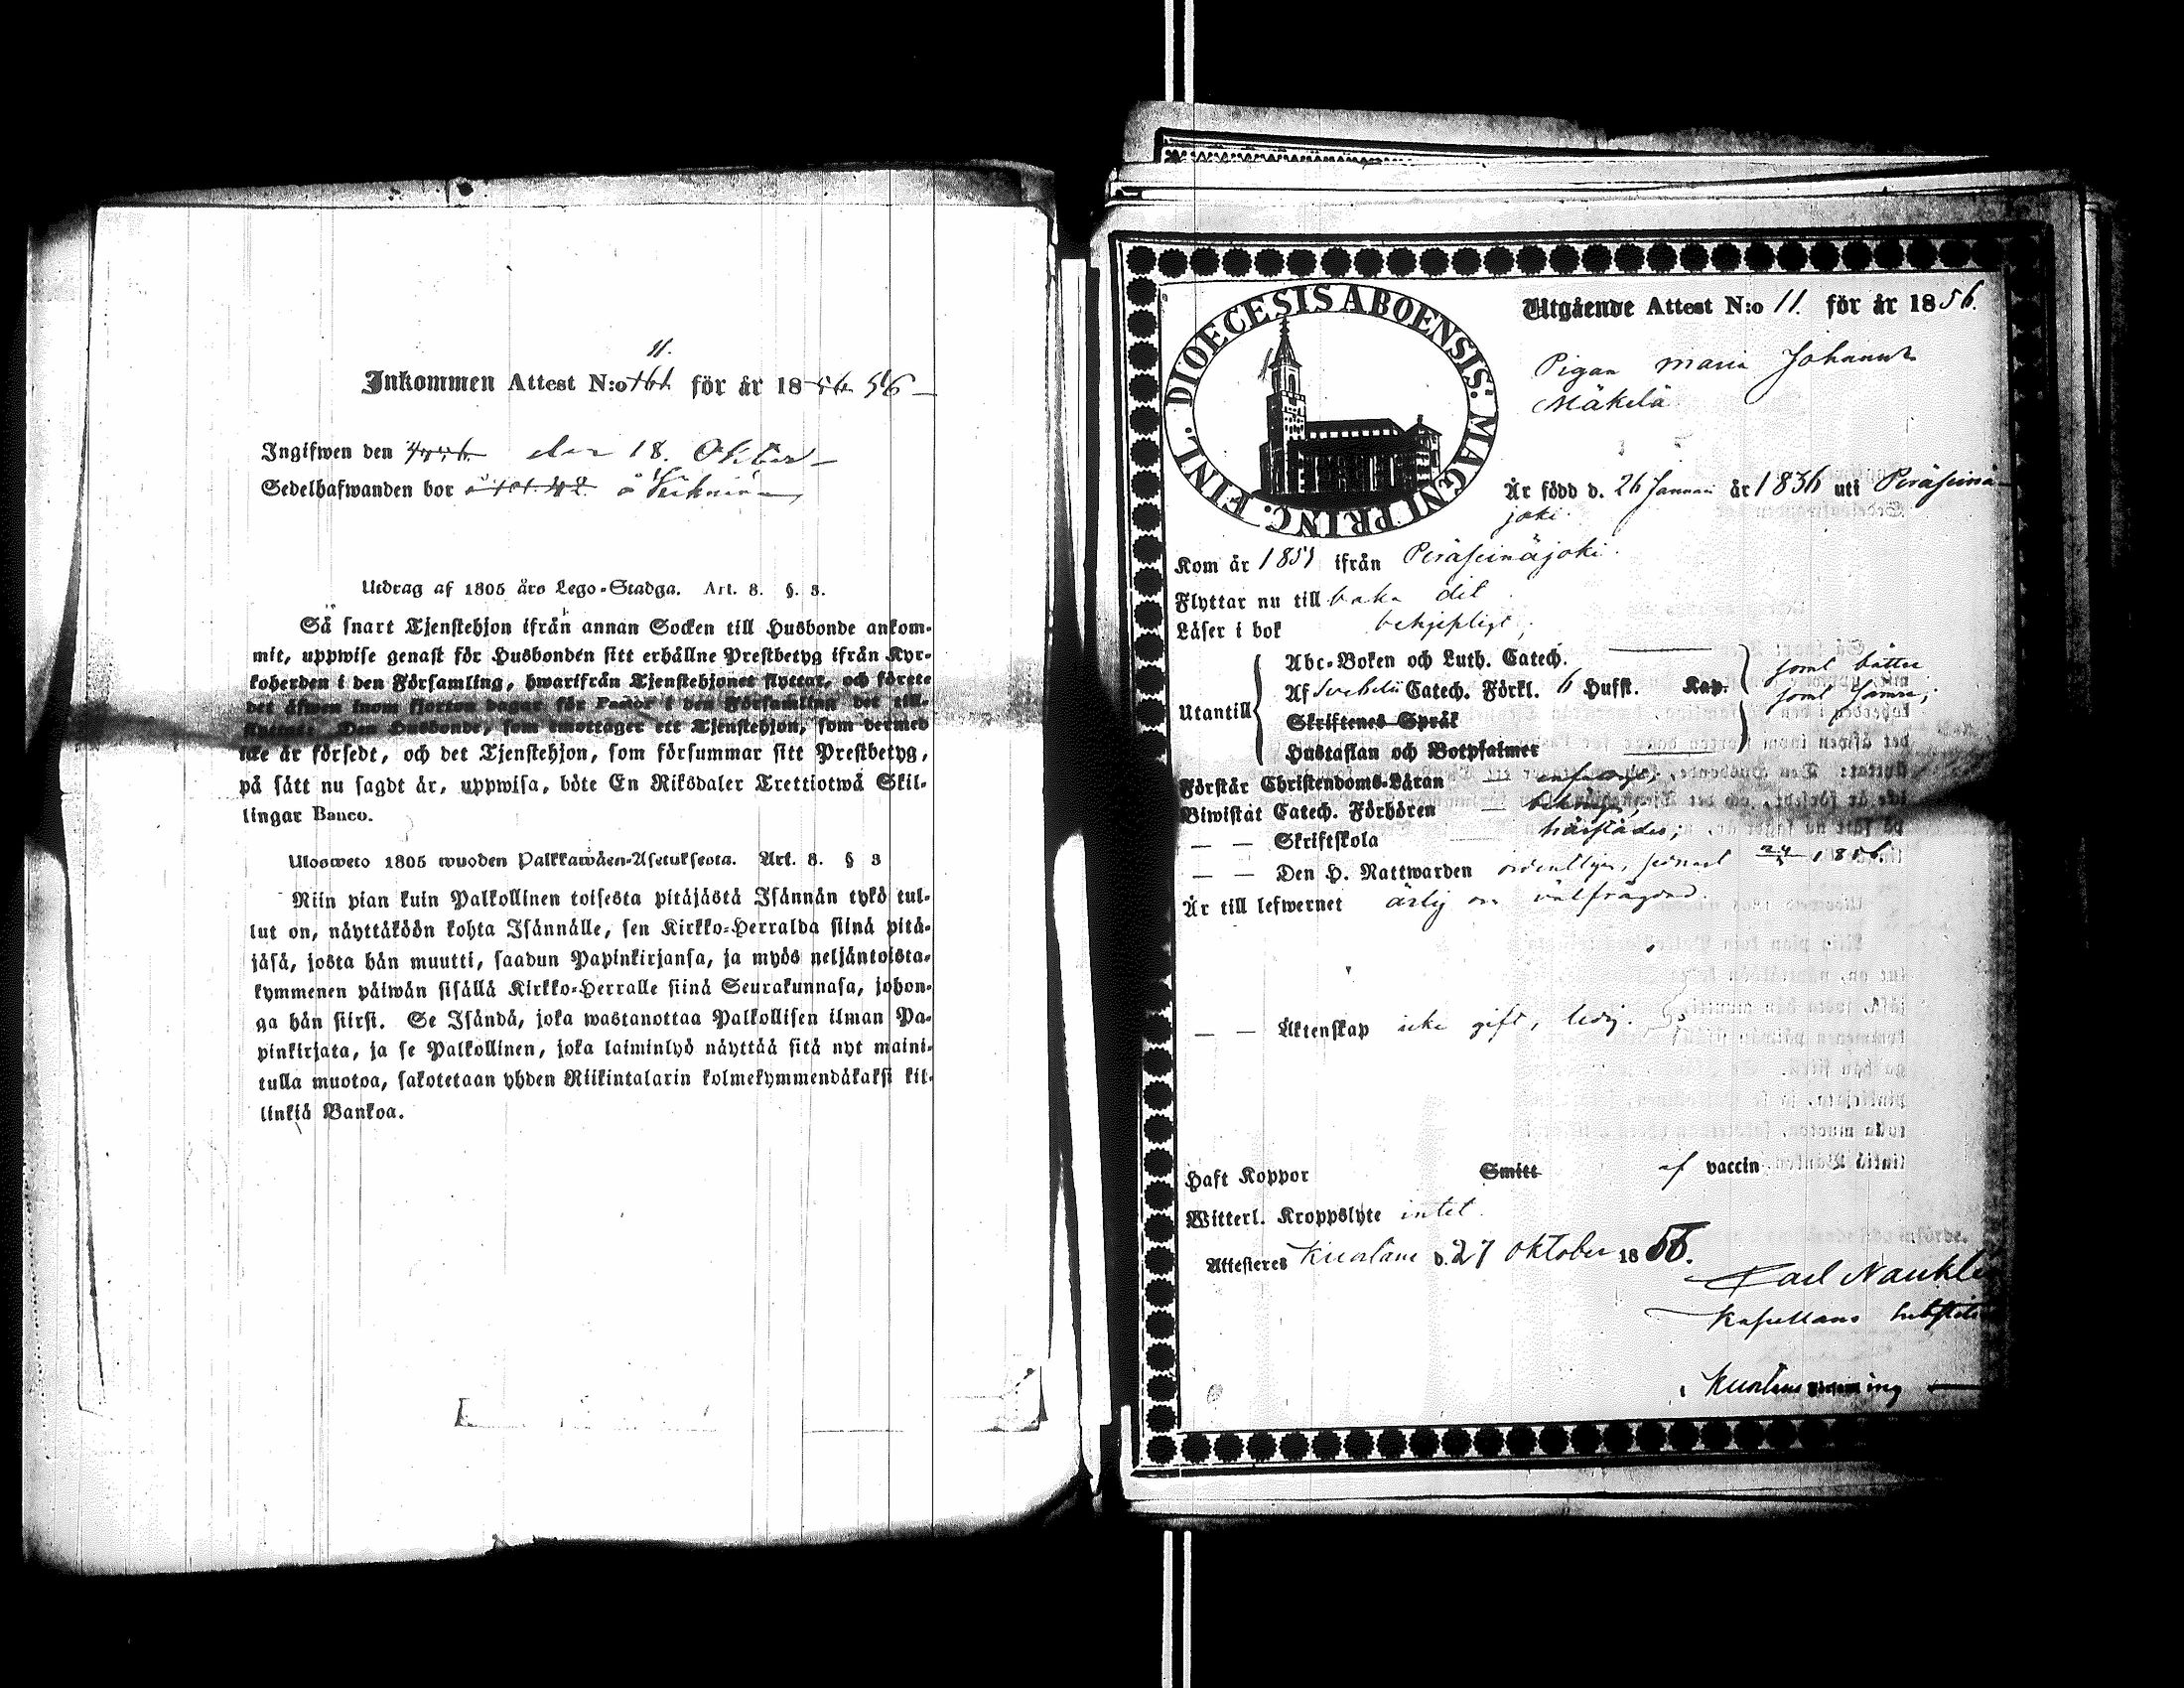 11.
Inkommen Attest N:o för år 18 56
Ingifwen den den 18.
Sedelhafwanden bor å
Utdrag af 1805 års Lego-Stadga. Art. 8. §. 3.
Så snart Tjenstehjon ifrån annan Socken till Husbonde ankom-
mit, uppwise genast för Husbonden sitt erhållne Prestbetyg ifrån Kyr-
koherden i den Församling, hwarifrån Tjenstehjonet flyttar, och förete
det äfwen inom fjorton dagar för Pastor i den Församling det till-
flyttat: Den Husbonde, som emottager ett Tjenstehjon, som dermed
icke är försedt, och det Tjenstehjon, som försummar sitt Prestbetyg,
på sätt nu sagdt är, uppwisa, böte En Riksdaler Trettiotwå Skil-
lingar Banco.
Ulosweto 1805 wuoden Palkkawäen-Asetuksesta. Art. 8. § 3
Niin pian kuin Palkollinen toisesta pitäjästä Isännän tykö tul-
lut on, näyttäköön kohta Isännälle, sen Kirkko-Herralda siinä pitä-
jäsä, josta hän muutti, saadun Papinkirjansa, ja myös neljäntoista-
kymmenen päiwän sisällä Kirkko-Herralle siinä Seurakunnasa, johon-
ga hän siirsi. Se Isändä, joka wastanottaa Palkollisen ilman Pa-
pinkirjata, ja se Palkollinen, joka laiminlyö näyttää sitä nyt maini-
tulla muotoa, sakotetaan yhden Riikintalarin kolmekymmendäkaksi kil-
linkiä Bankoa.
DIOECESIS ABOENSIS: MAGNI PRINC. FINL.
Utgående Attest N:o 11. för år 1856.
Pigan Maria Johanna
Mäkelä
Är född d. 26 Januari år 1836 uti Peräseinä-
joki
Kom år 1851 ifrån Peräseinäjoki.
Flyttar nu till baka dit
Läser i bok behjelpligt;
Abc-Boken och Luth. Catech.
Af Svebelii Catech. Förkl. 6 Hufst. Kap.
Utantill
Skriftenes Språk
Hustaflan och Botpsalmer
Förstår Christendoms-Läran
Biwistat Catech. Förhören
— — Skriftskola härstädes;
— — Den H. Nattwarden ordentligen, senast 1856.
Är till lefwernet ärlig och välfrägdad.
— — Äktenskap icke gift, ledig.
Haft Koppor Smitt af vaccin
Witterl. Kroppslyte intet.
Attesteres Kuortane d. 27 Oktober 1856.
Carl
Kapellans
i Kuortane